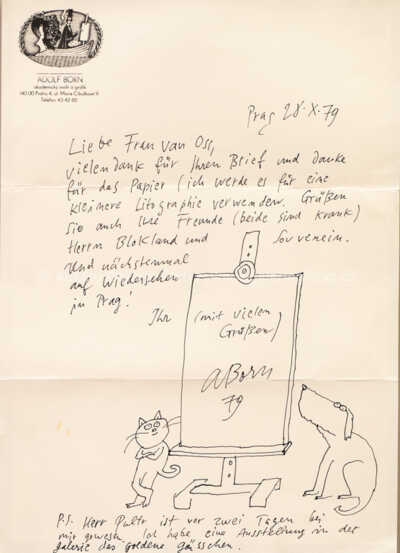 ADOLF BORN
akademický malíř a grafik
140 00 Praha 4, ul. Marie Cibulkové 9
Telefon 43 42 80
Prag 28. X. 79
Liebe Frau van Oss,
vielen dank für Ihren Brief und danke
für das Papier (ich werde es für eine
kleinere Litographie verwenden. Grüßen
sie auch Ihre Freunde (beide sind krank)
Herrn Blokland und Souverein.
Und nächstenmal
auf Wiedersehen
in Prag!
Ihr (mit vielen
Grüßen)
ABorn
79
P.S. Herr Paltr ist vor zwei Tagen bei
mir gewesen. Ich habe eine Ausstellung in der
galerie das goldene gässchen.